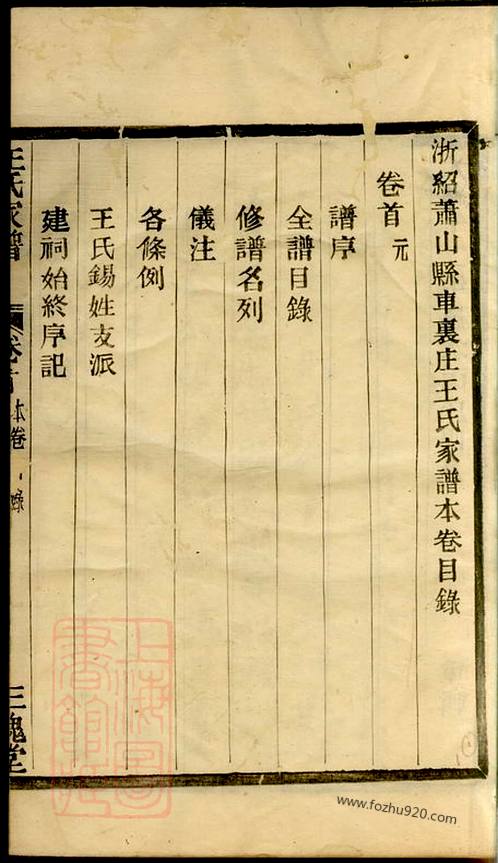 浙紹蕭山縣車裏庄王氏家譜本卷目錄
卷首 元
譜序
全譜目錄
修譜名列
儀注
各條例
王氏錫姓支派
建祠始終序記
王氏家譜 卷首 本卷目錄 三槐堂
上海圖書館藏
www.fozhu920.com